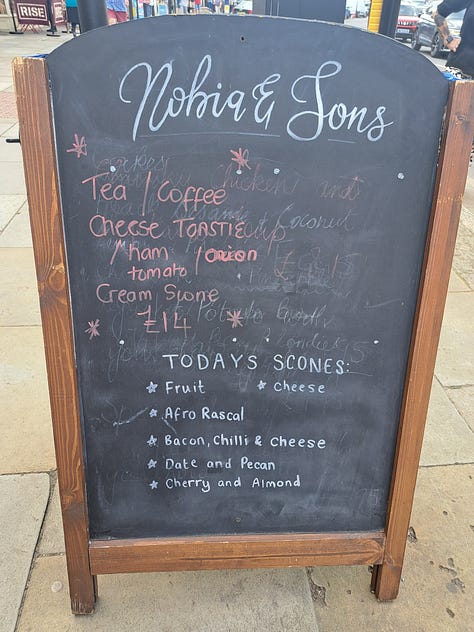 RISE
Nobia & Sons
Tea / Coffee
Cheese TOASTIE
/ham /onion
tomato
Cream Scone
£14
TODAYS SCONES:
Fruit
Cheese
Afro Rascal
Bacon, Chilli & Cheese
Date and Pecan
Cherry and Almond